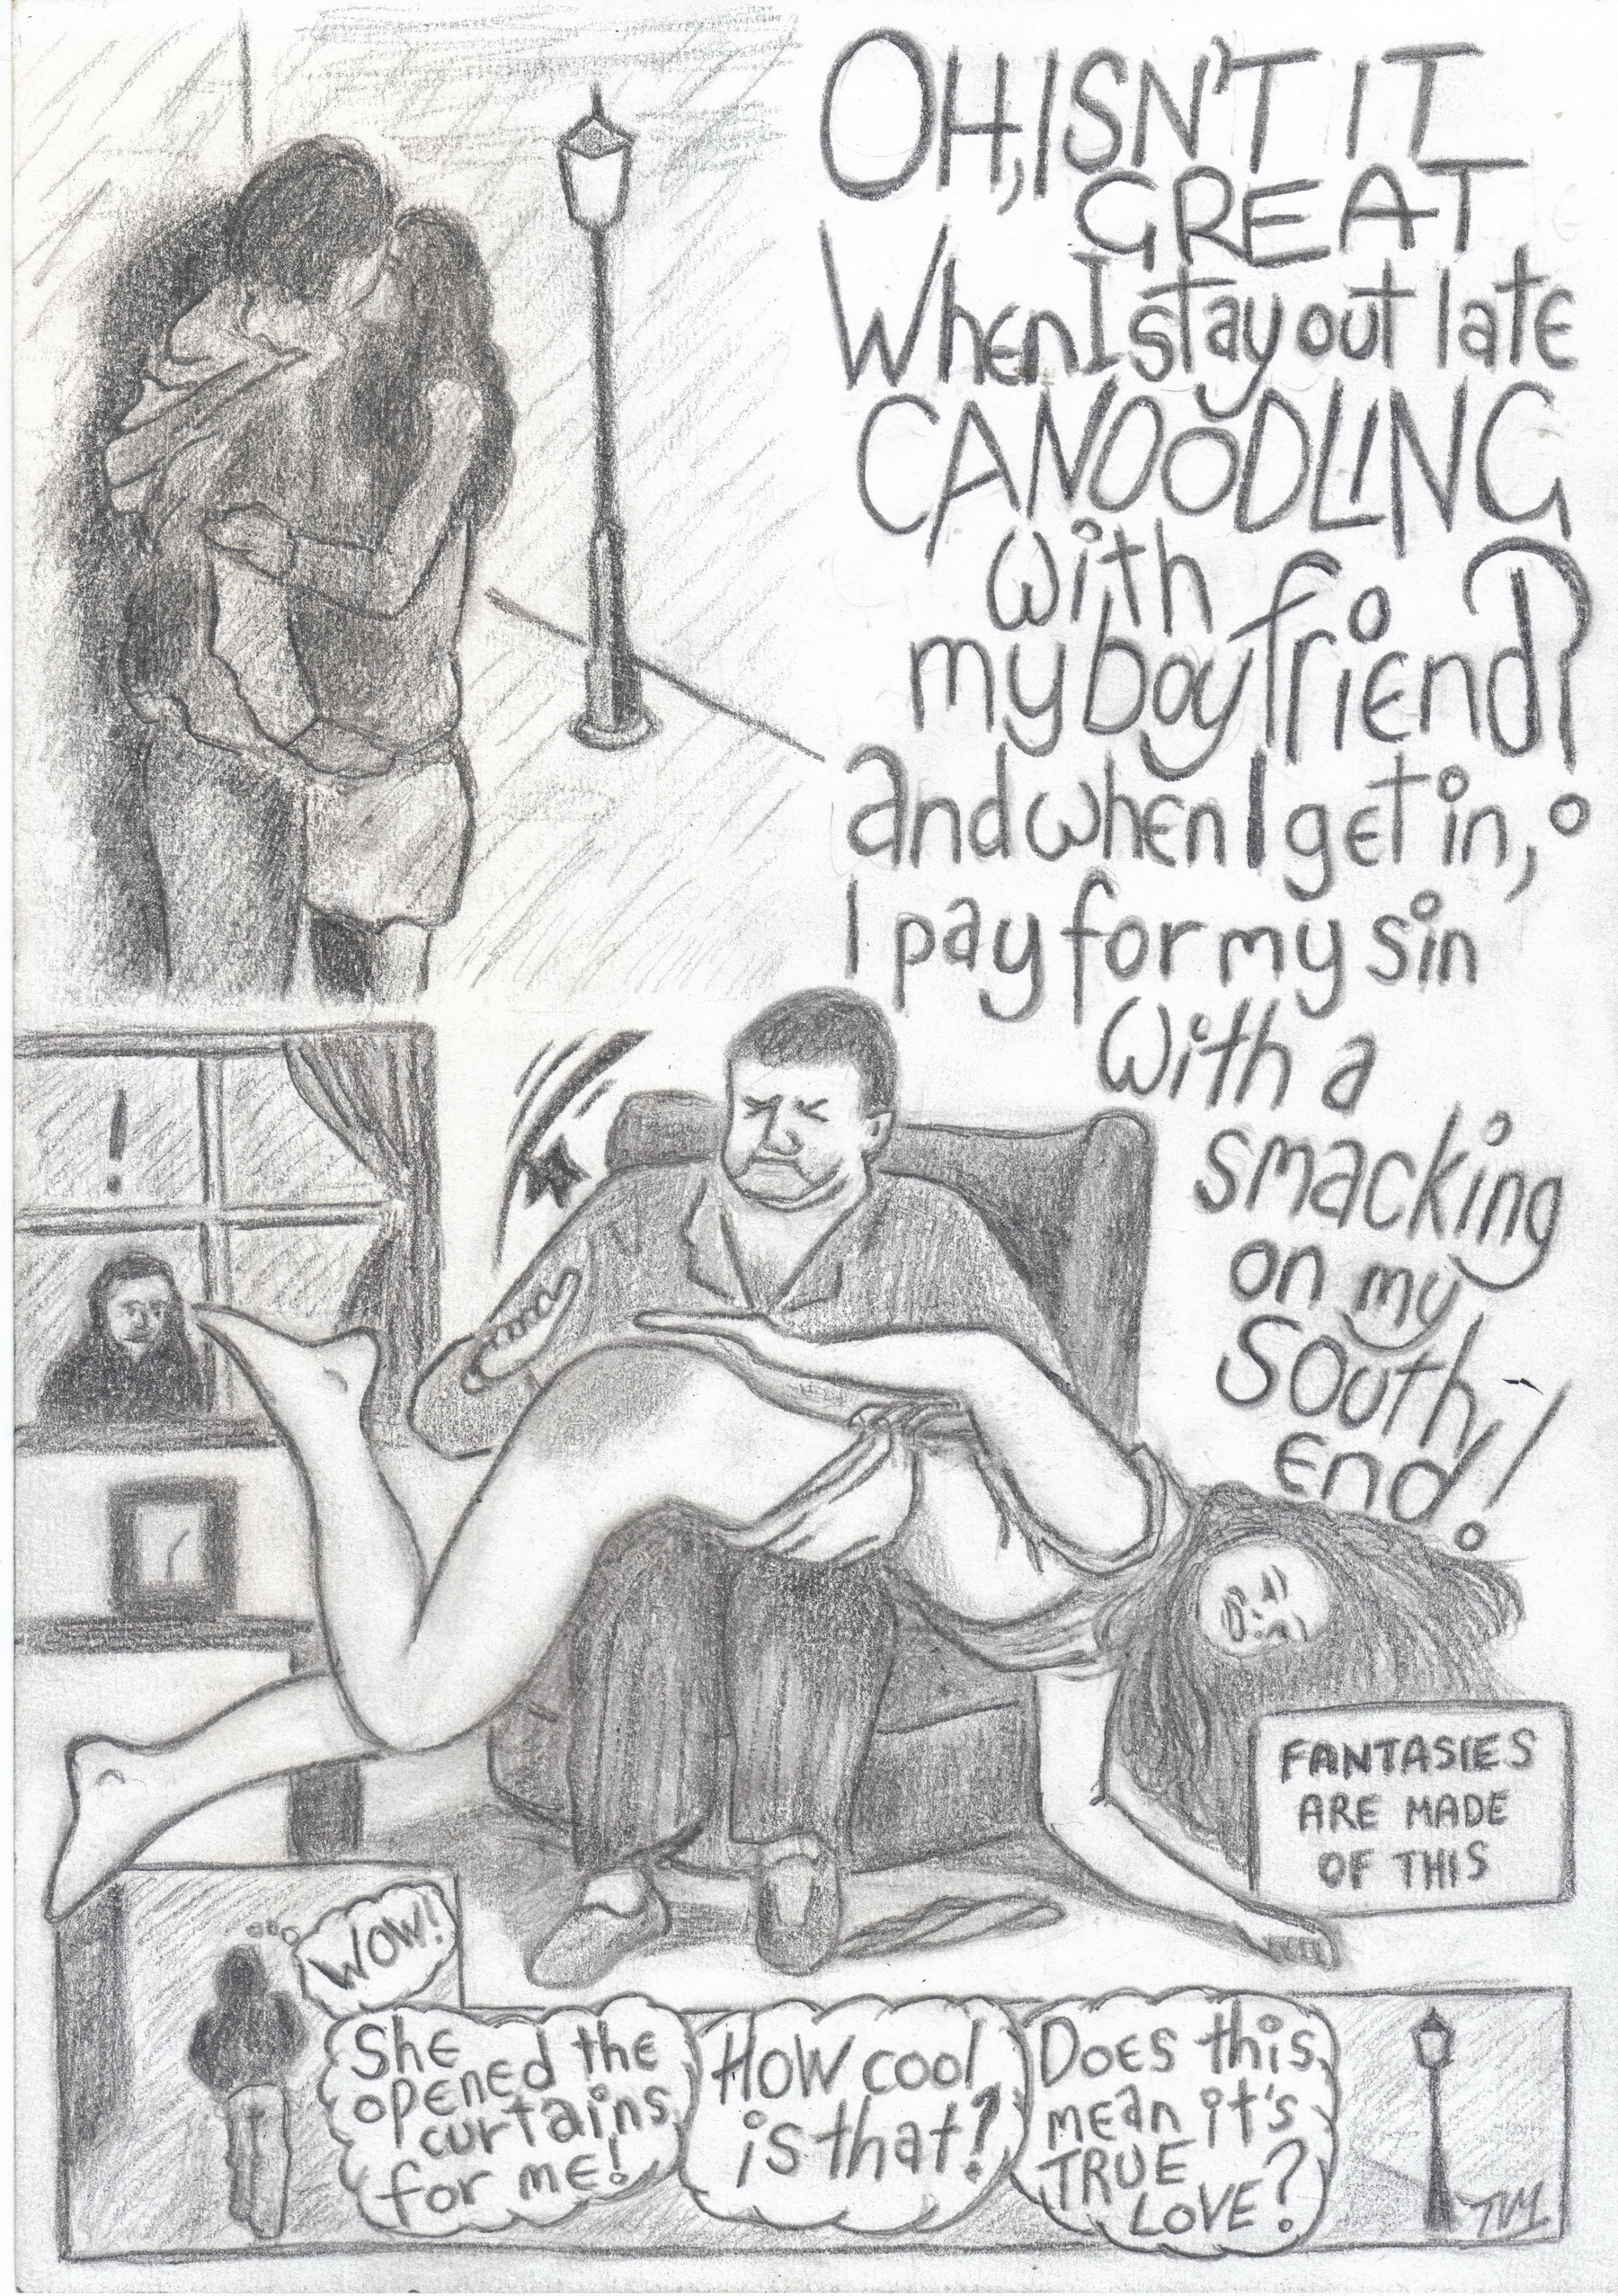 OH, ISN'T IT
GREAT
When I stay out late
CANOODLING
with
my boyfriend?
And when I get in,
I pay for my sin
With a
smacking
on my
south
end!
!
FANTASIES
ARE MADE
OF THIS
WOW!
She
opened the
curtains
for me!
How cool
is that?
Does this
mean it's
TRUE
LOVE?
TVM